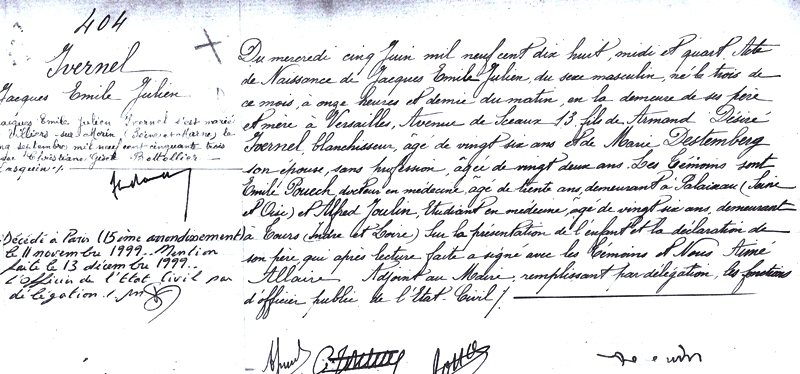 404
Ivernel
Jacques Emile Julien
Jacques Emile Julien Ivernel s'est marié
Villiers-sur-Morin (Seine-et-Marne) le
cinq septembre mil neuf cent cinquante trois
Décédé à Paris (15ème arrondissement)
le 11 novembre 1999. Mention
faite le 13 décembre 1999.
L'officier de l'Etat Civil par
délégation.
Du mercredi cinq Juin mil neuf cent dix huit, midi et quart Acte
de Naissance de Jacques Emile Julien, du sexe masculin, né le trois de
ce mois, à onze heures et demie du matin, en la demeure de ses père
et mère à Versailles, Avenue de Sceaux 13, fils de Armand Désiré
Ivernel, blanchisseur, âgé de vingt six ans et de Marie Destemberg
son épouse, sans profession, âgée de vingt deux ans. Les Témoins sont
Emile Pouech, docteur en médecine, âgé de trente ans, demeurant à Palaiseau (Seine
et Oise) et Alfred Joulin, Etudiant en médecine, âgé de vingt six ans, demeurant
à Tours (Indre et Loire) Sur la présentation de l'enfant et la déclaration de
son père qui après lecture faite a signé avec les Témoins et Nous Aimé
Allaire Adjoint au Maire, remplissant par délégation, les fonctions
d'officier public de l'Etat-Civil /.